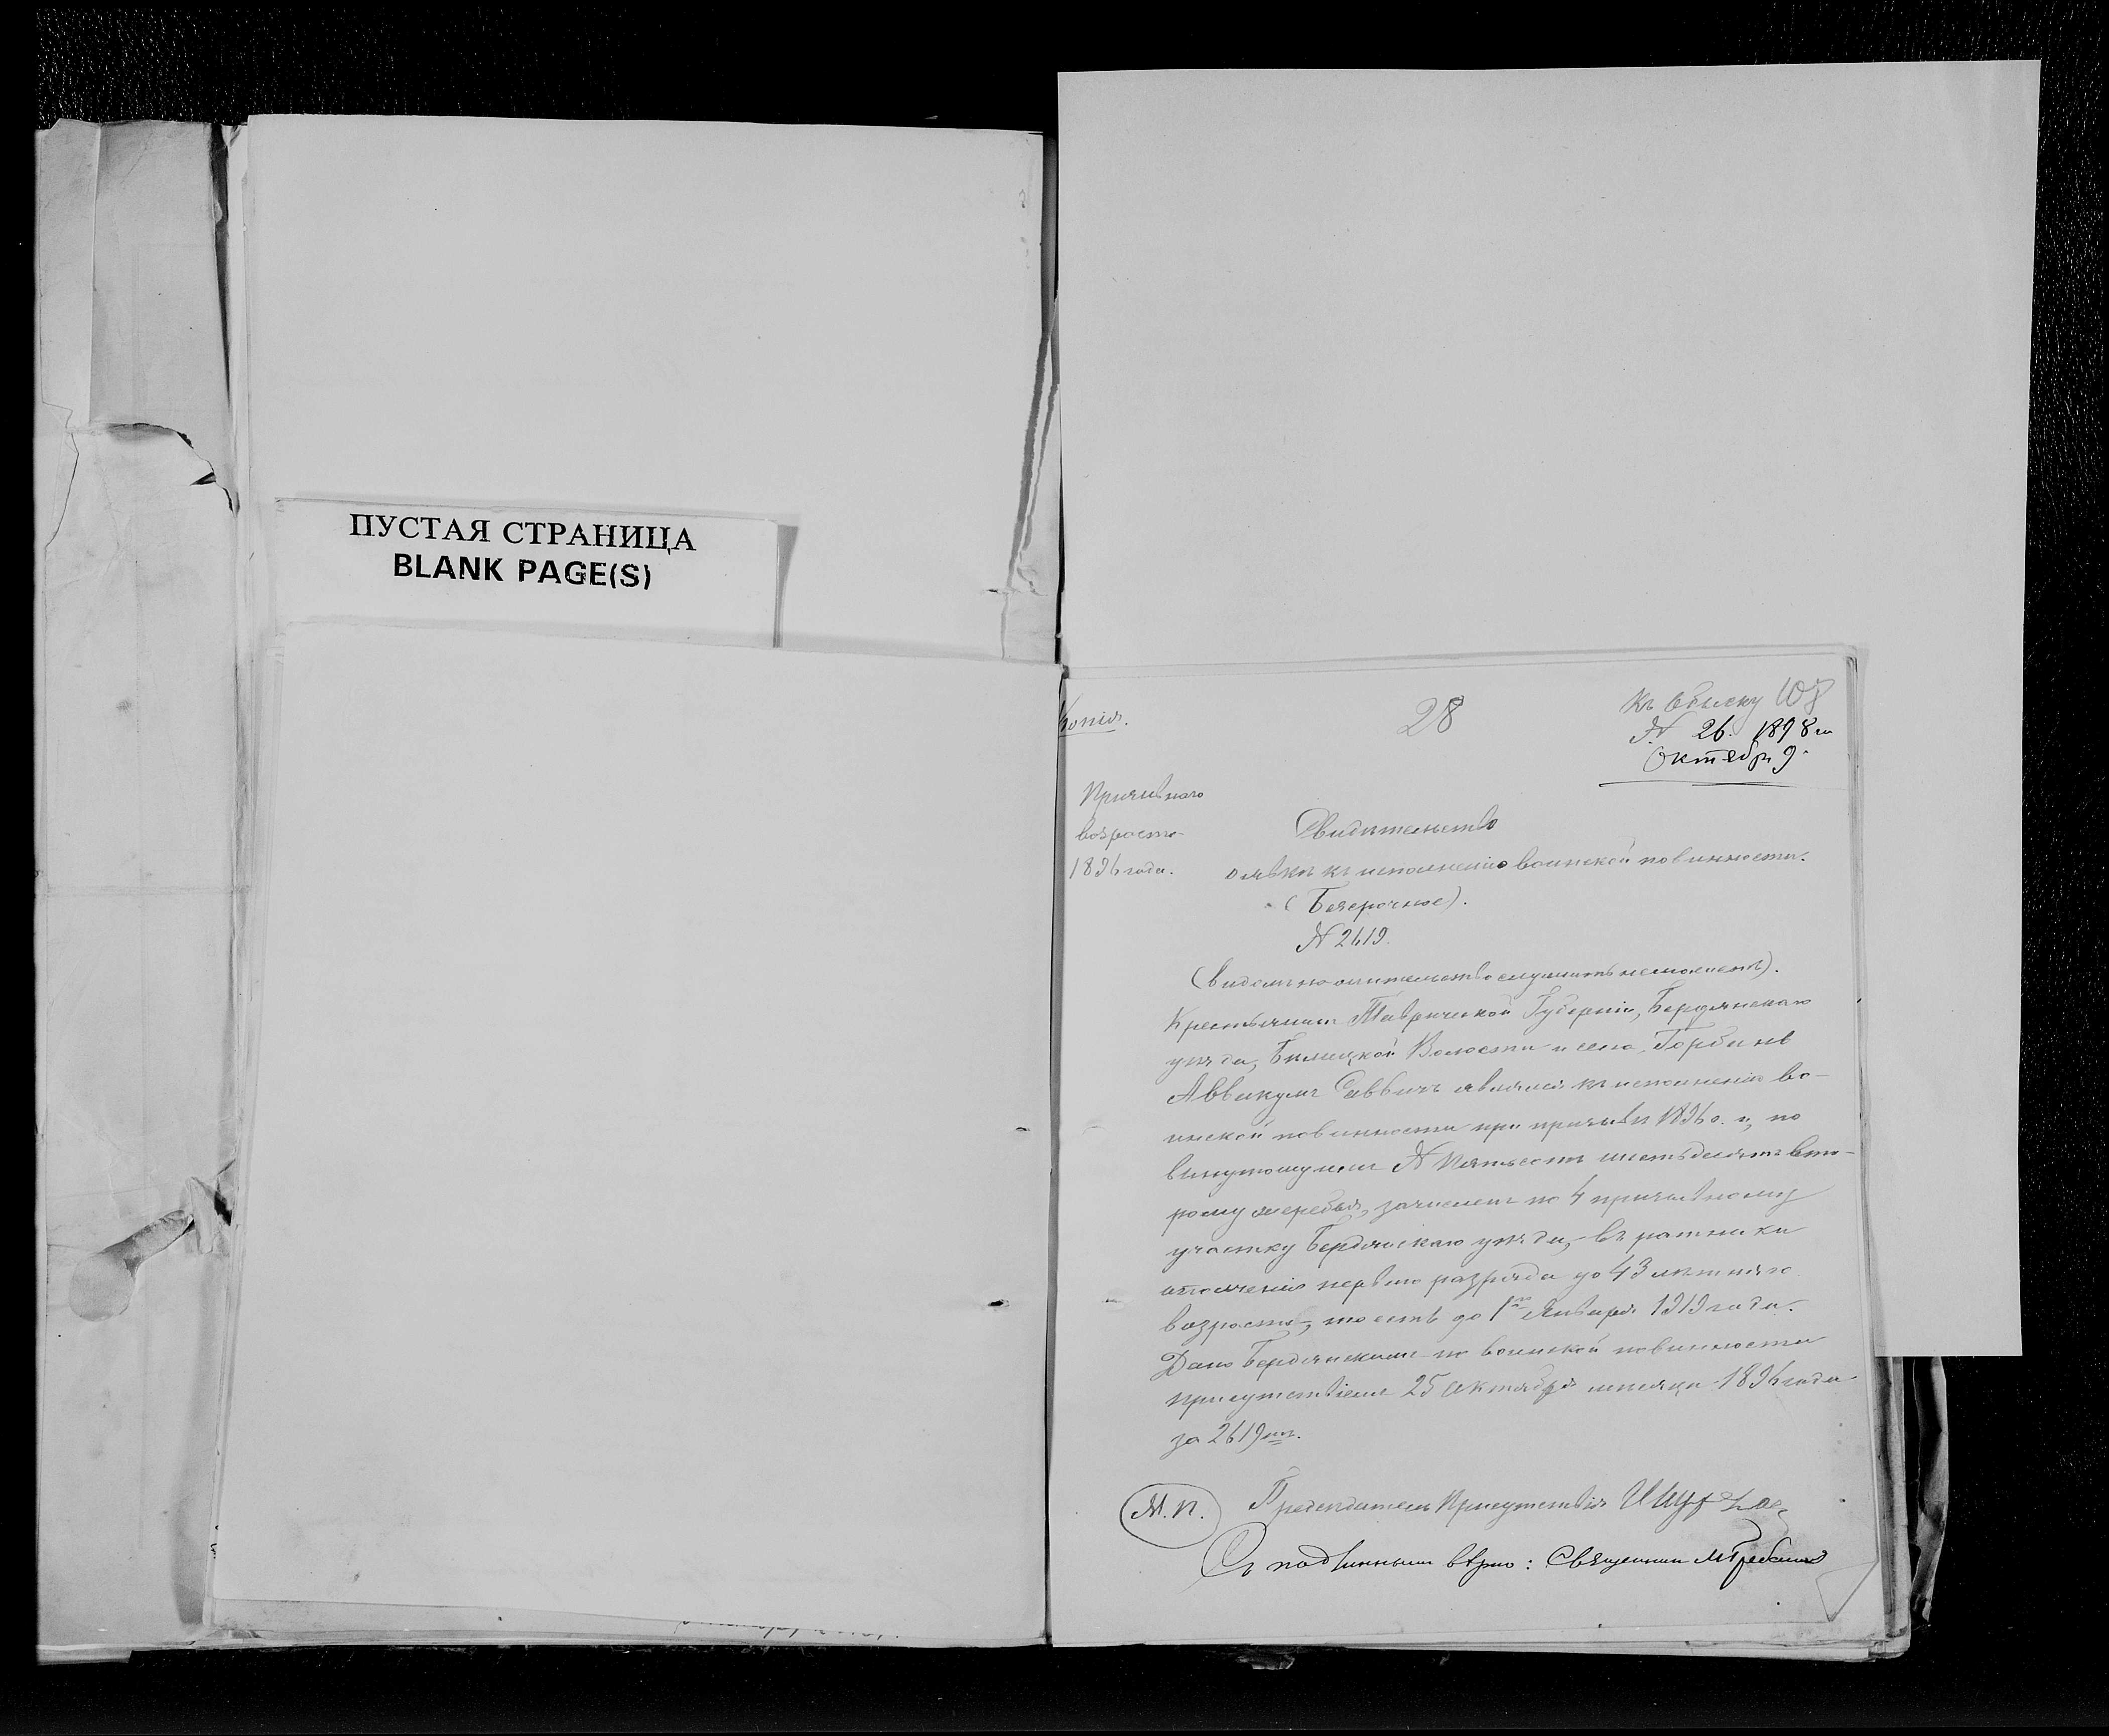 ПУСТАЯ СТРАНИЦА
BLANK PAGE(S)
Копія.
28
Къ обыску
№ 26. 1898 г.
Октябр. 9.
Призывнаго
возраста
1896 года.
Свидѣтельство
о явкѣ къ исполненію воинской повинности.
(Безсрочное).
№ 2619.
(видомъ на жительство служить не можетъ).
Крестьянинъ Таврической Губерніи, Бердянскаго
уѣзда, Волости и села,
Аввакумъ Саввичъ являлся къ исполненію во-
инской повинности при призывѣ 1896 г., по
вынутому имъ № Пятьсотъ шестьдесятъ вто-
рому жеребья, зачисленъ по 4 призывному
участку Бердянскаго уѣзда, въ ратники
ополченія перваго разряда до 43 лѣтняго
возраста, то есть до 1го Января 1919 года.
Дано Бердянскимъ по воинской повинности
присутствіемъ 25 Октября мѣсяца 1896 года
за 2619
М.П.
Предсѣдатель Присутствія
Съ подлиннымъ вѣрно: Священникъ